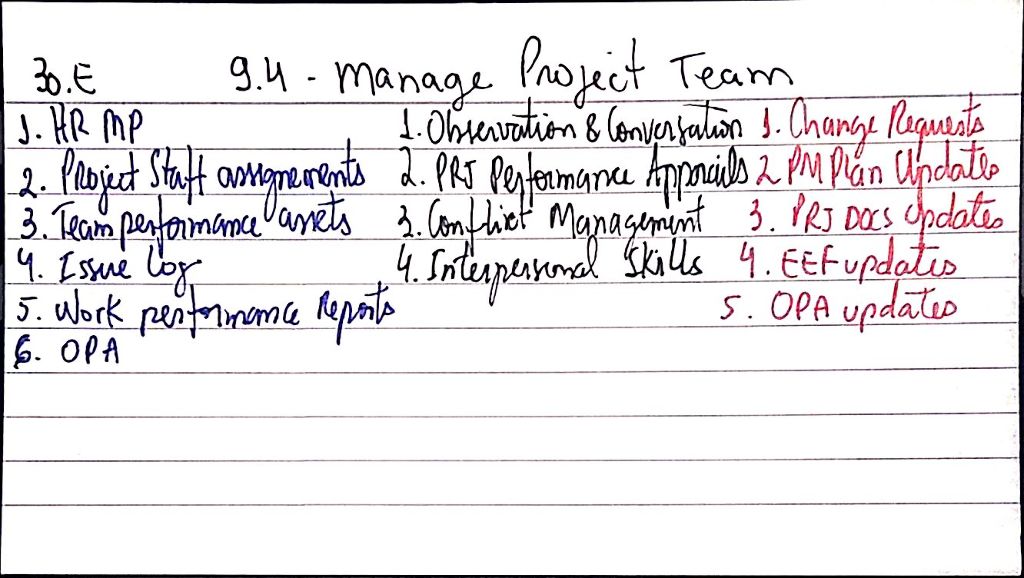 30.E 9.4 - Manage Project Team
1. HR MP 1. Observation & Conversation 1. Change Requests
2. Project Staff assignements 2. PRJ Performance Appraials 2 PM Plan Updates
3. Team performance assets 3. Conflict Management 3. PRJ DOCS Updates
4. Issue log 4. Interpersonal Skills 4. EEF updates
5. Work performance Reports 5. OPA updates
6. OPA